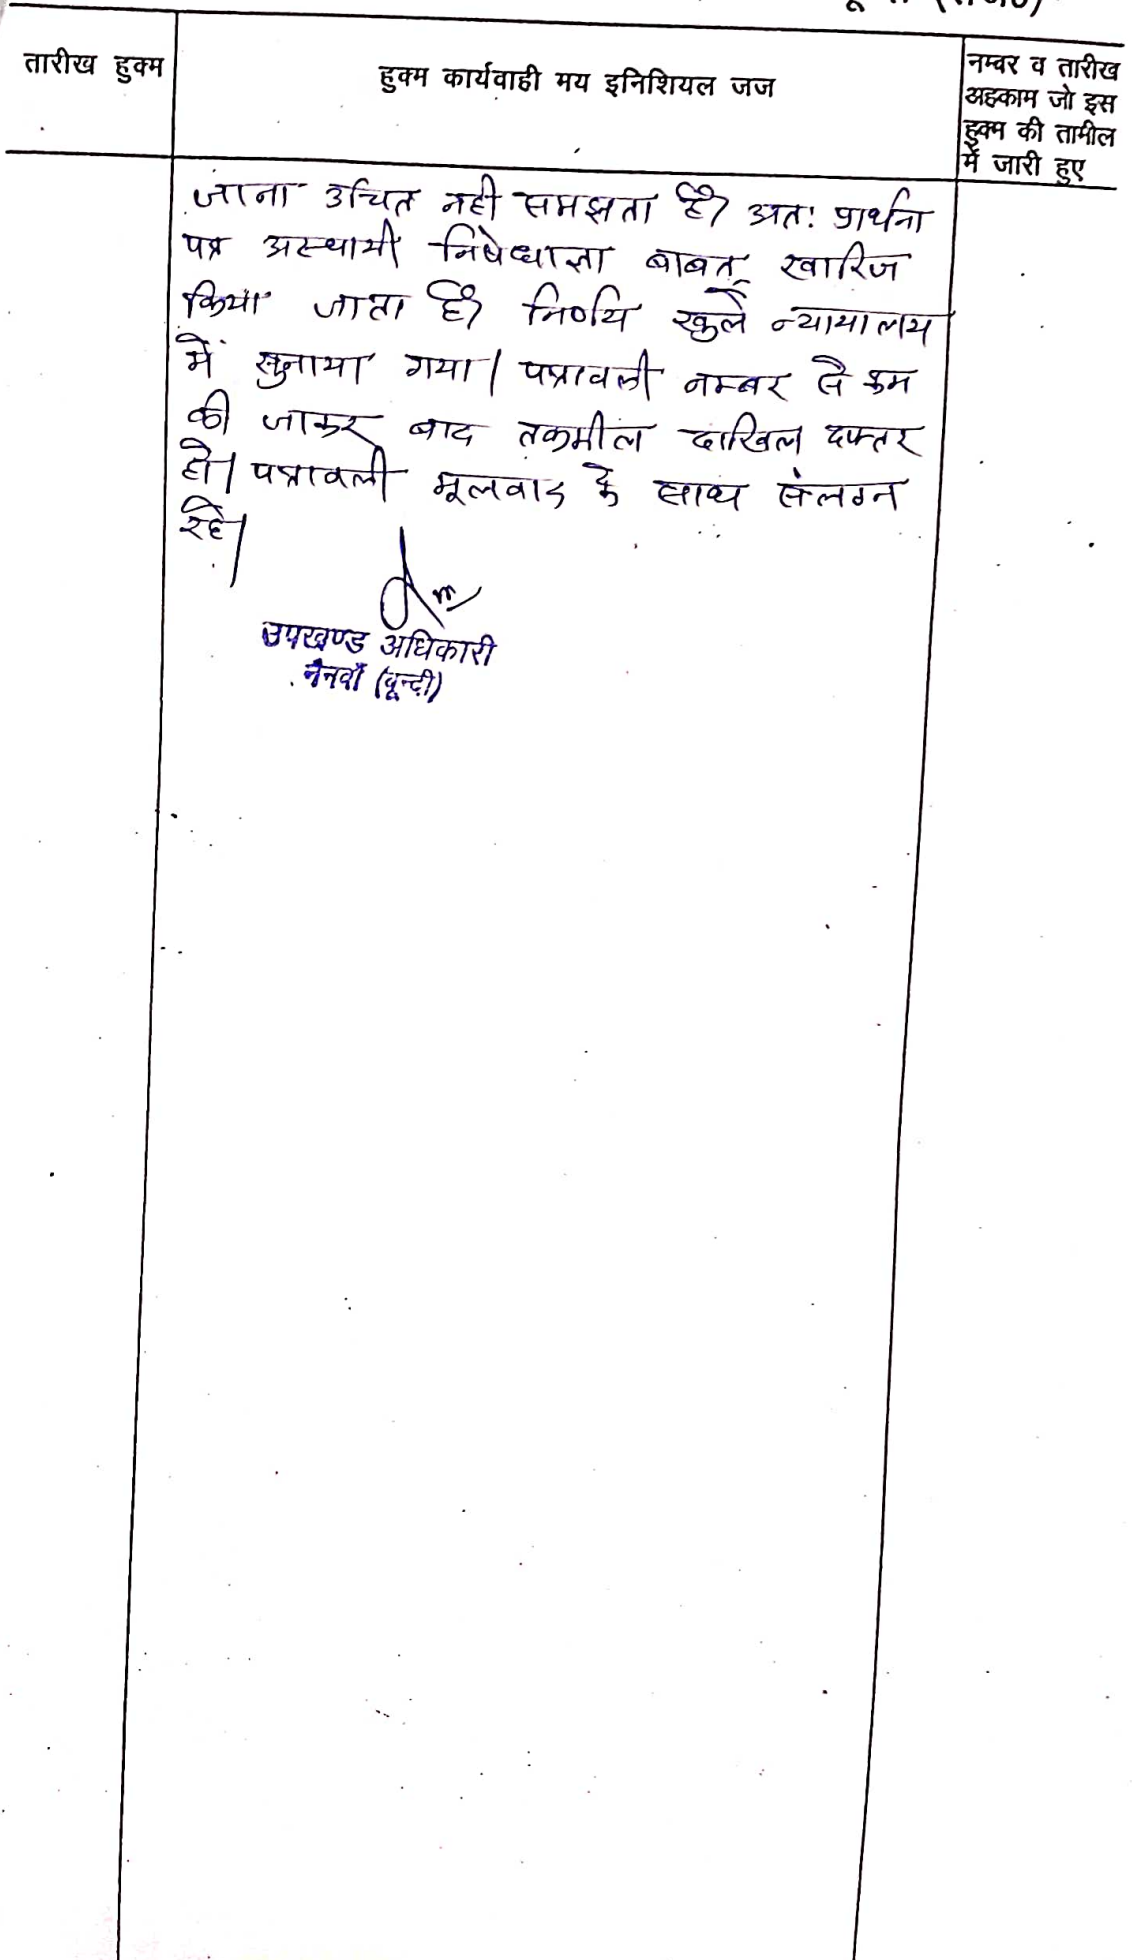 तारीख हुक्म
हुक्म कार्यवाही मय इनिशियल जज
नम्वर व तारीख
अहकाम जो इस
हुक्म की तामील
में जारी हुए
जाना उचित नही समझता है। अतः प्रार्थना
पत्र अस्थायी निषेधाज्ञा बाबत् खारिज
किया जाता है। निर्णय खुले न्यायालय
में सुनाया गया। पत्रावली नम्बर से कम
की जाकर बाद तकमील दाखिल दफ्तर
हो। पत्रावली मूलवाद के साथ संलग्न
रहे।
उपखण्ड अधिकारी
नैनवाँ (बून्दी)